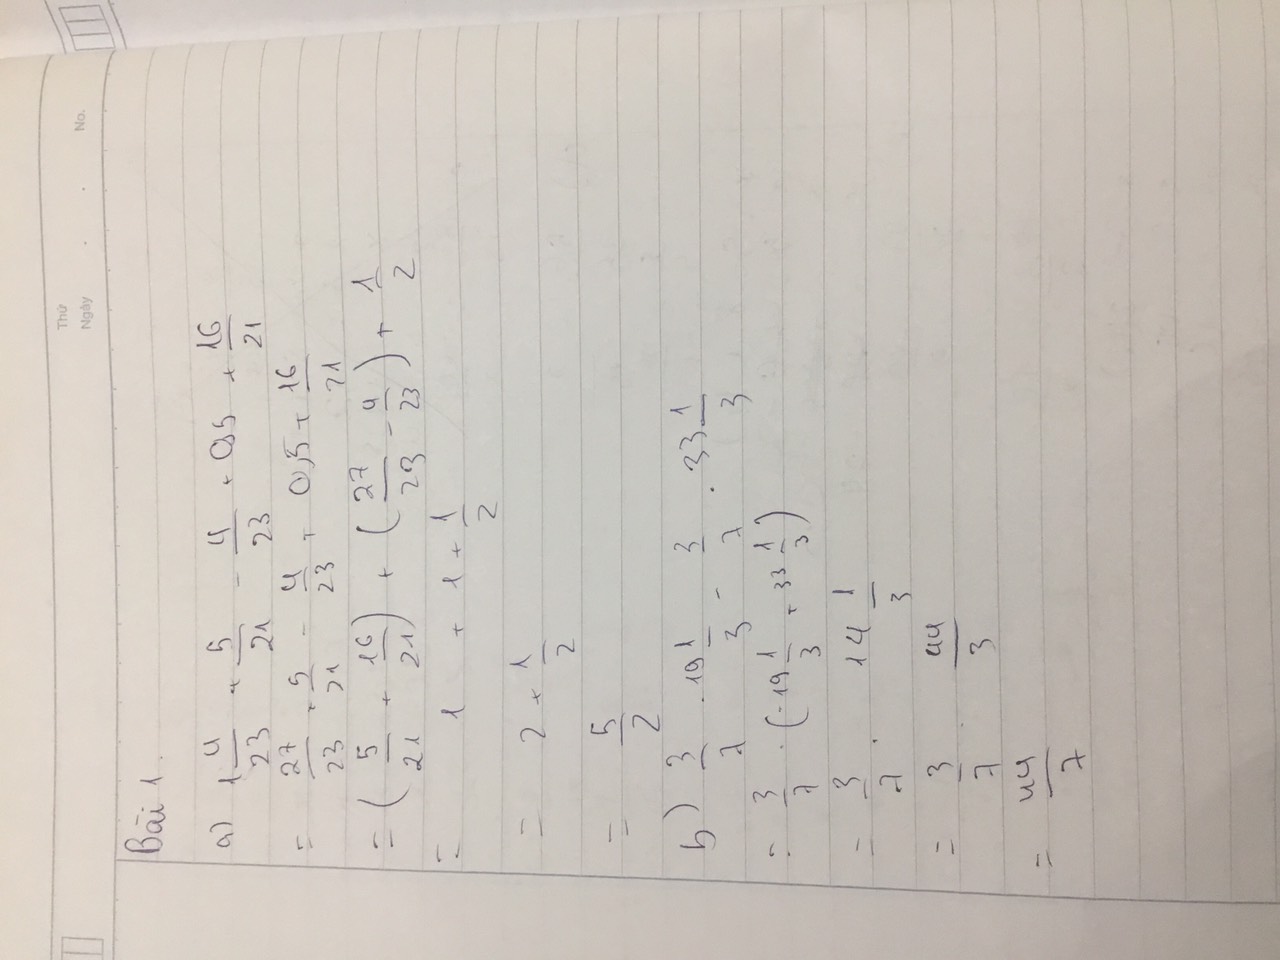 Thứ
Ngày . . No.
Bài 1.
a) 1 4/23 + 5/21 - 4/23 + 0,5 + 16/21
= 27/23 + 5/21 - 4/23 + 0,5 + 16/21
= (5/21 + 16/21) + (27/23 - 4/23) + 1/2
= 1 + 1 + 1/2
= 2 + 1/2
= 5/2
b) 3/7 . 19 1/3 - 3/7 . 33 1/3
= 3/7 . (-19 1/3 + 33 1/3)
= 3/7 . 14 1/3
= 3/7 . 44/3
= 44/7